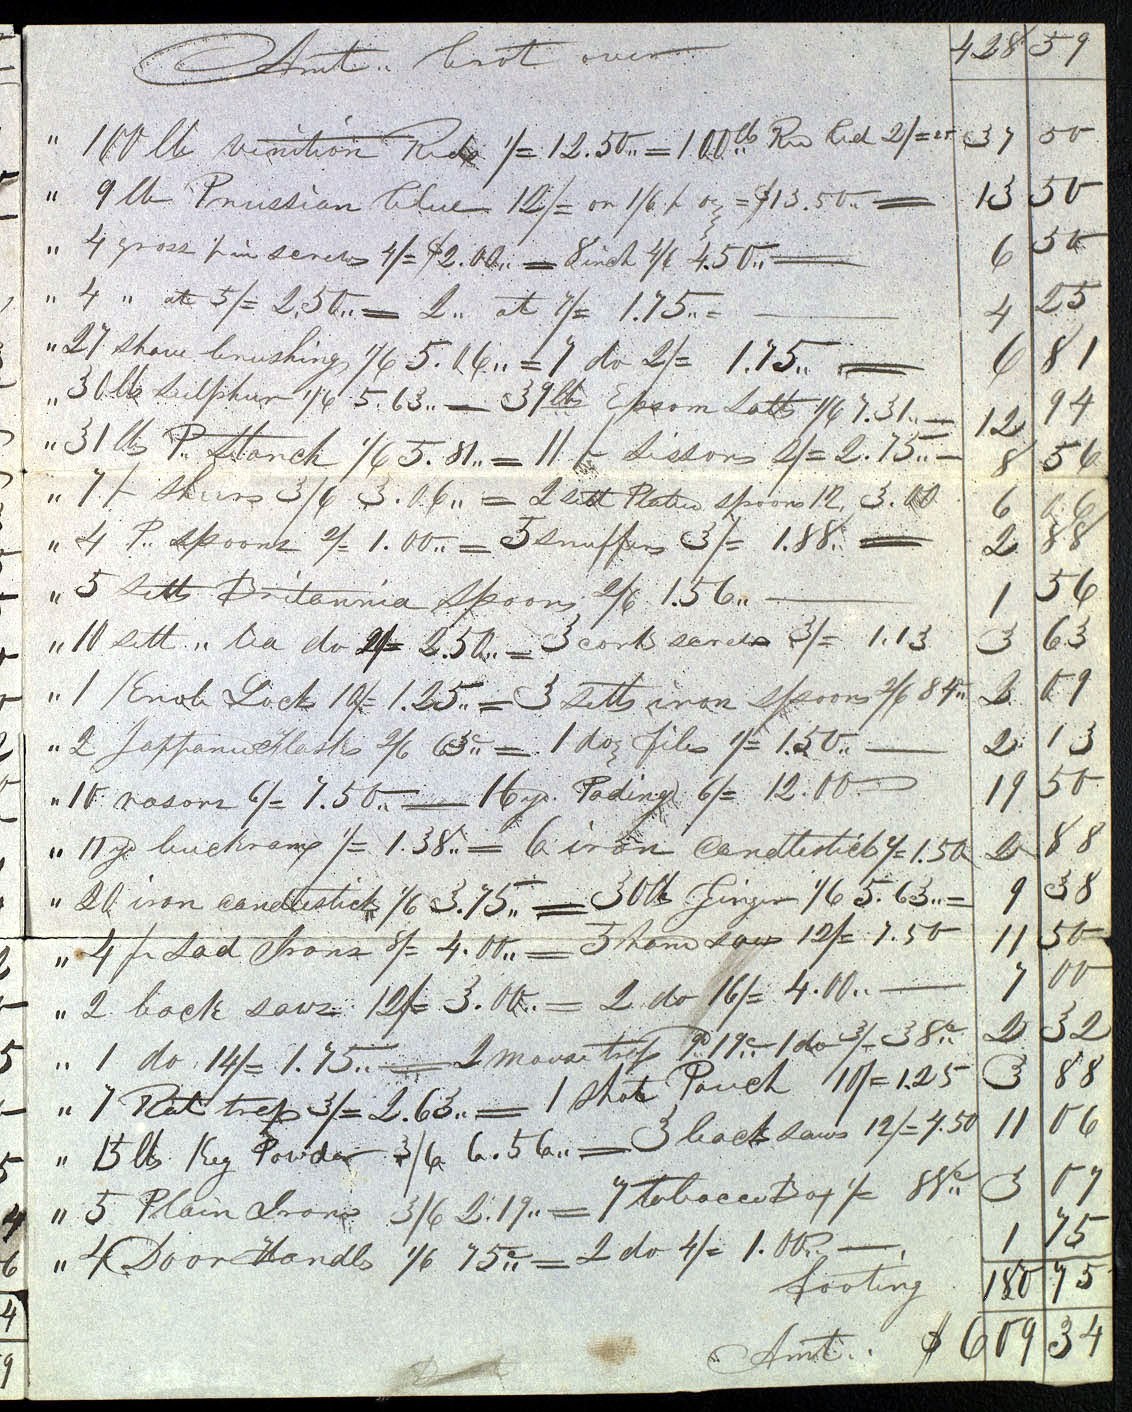 Amt.. brot over 428 59
" 100 lb venition Red 1/= 12.50.. = 100 lb Red 2/= 25 37 50
" 9 lb Prussian blue 12/= or 1/6 p oz = $13.50.. = 13 50
" 4 gross screws 4/= $2.00.. = 8 inch 4/6 4.50.. 6 50
" 4 " at 5/= 2.50.. = 2.. at 7/= 1.75.. = 4 25
" 27 shave brushing 1/6 5.06.. = 7 do 2/= 1.75.. = 6 81
" 30 lb sulphur 1/6 5.63.. — 39 lbs Epsom Salts 1/6 7.31.. = 12 94
" 31 lbs P.. Starch 1/6 5.81.. = 11 pr sissors 2/= 2.75.. = 8 56
" 7 pr shers 3/6 3.06.. = 2 sett Plated spoons 12, 3.00 6 06
" 4 P.. spoons 2/= 1.00.. = 5 snuffers 3/= 1.88.. = 2 88
" 5 setts Britannia spoons 2/6 1.56.. 1 56
" 10 sett .. tea do 2/= 2.50.. = 3 cork screws 3/= 1.13 3 63
" 1 Knob Lock 10/= 1.25.. = 3 setts iron spoons 2/6 84.. 2 09
" 2 Jappanu Flasks 2/6 63c = 1 doz files 1/= 1.50.. 2 13
" 10 rasors 6/= 7.50.. — 16 yd Pading 6/= 12.00 19 50
" 11 yd buckramp 1/= 1.38.. = 6 iron candlestick 2/= 1.50 2 88
" 20 iron candlestick 1/6 3.75.. = 30 lb Ginger 1/6 5.63.. = 9 38
" 4 pr Sad Irons 8/= 4.00.. = 5 hand saws 12/= 7.50 11 50
" 2 back saws 12/= 3.00.. = 2 do 16/= 4.00.. 7 00
" 1 do 14/= 1.75.. = 2 mouse trap 19c 1 do 3/= 38c 2 32
" 7 Rat traps 3/= 2.63.. = 1 shot Pouch 10/= 1.25 3 88
" 15 lb Keg Powder 3/6 6.56.. = 3 back saws 12/= 4.50 11 06
" 5 Plain Irons 3/6 2.19.. = 7 tobacco Box 1/= 88c.. 3 07
" 4 Door Handls 1/6 75c.. = 2 do 4/= 1.00.. 1 75
footing 180 75
Amt.. $ 609 34